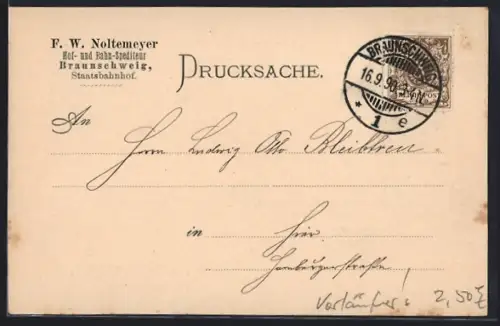 F. W. Noltemeyer
Hof- und Bahn-Spediteur
Braunschweig,
Staatsbahnhof.
DRUCKSACHE.
BRAUNSCHWEIG
16.9.98
* 1 e
An
Herrn Ludwig Otto Bleibtreu.
in Hier
Hamburgerstraße,
Vorläufer:
2,50